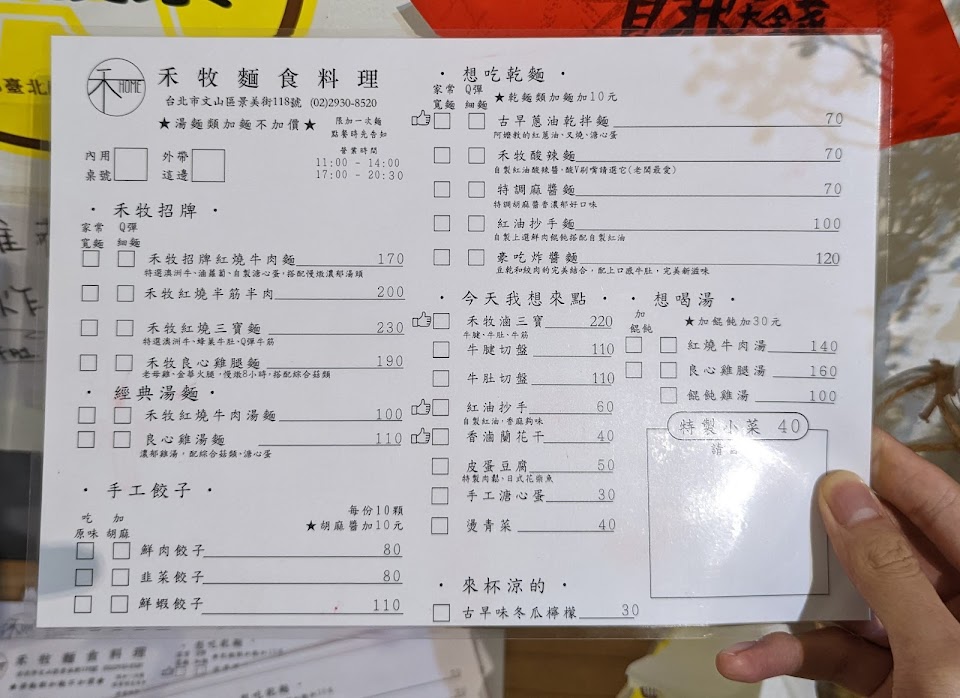 禾
HOME
禾牧麵食料理
台北市文山區景美街118號 (02)2930-8520
★湯麵類加麵不加價★
限加一次麵
點餐時先告知
內用
桌號
外帶
這邊
營業時間
11:00 - 14:00
17:00 - 20:30
· 禾牧招牌 ·
家常 Q彈
寬麵 細麵
禾牧招牌紅燒牛肉麵 170
特選澳洲牛、滷蘿蔔、自製溏心蛋,搭配慢燉濃郁湯頭
禾牧紅燒半筋半肉 200
禾牧紅燒三寶麵 230
特選澳洲牛、蜂巢牛肚、Q彈牛筋
禾牧良心雞腿麵 190
老母雞、金華火腿,慢燉8小時,搭配綜合菇類
· 經典湯麵 ·
禾牧紅燒牛肉湯麵 100
良心雞湯麵 110
濃郁雞湯,配綜合菇類、溏心蛋
· 手工餃子 ·
每份10顆
★胡麻醬加10元
吃 加
原味 胡麻
鮮肉餃子 80
韭菜餃子 80
鮮蝦餃子 110
· 想吃乾麵 ·
家常 Q彈
寬麵 細麵
★乾麵類加麵加10元
古早蔥油乾拌麵 70
阿嬤教的紅蔥油、叉燒、溏心蛋
禾牧酸辣麵 70
自製紅油酸辣醬,酸V刷嘴請選它(老闆最愛)
特調麻醬麵 70
特調胡麻醬香濃郁好口味
紅油抄手麵 100
自製上選鮮肉餛飩搭配自製紅油
豪吃炸醬麵 120
豆乾和絞肉的完美結合,配上口感牛肚,完美新滋味
· 今天我想來點 ·
禾牧滷三寶 220
牛腱、牛肚、牛筋
牛腱切盤 110
牛肚切盤 110
紅油抄手 60
自製紅油,香麻夠味
香滷蘭花干 40
皮蛋豆腐 50
特製肉鬆、日式花柴魚
手工溏心蛋 30
燙青菜 40
· 來杯涼的 ·
古早味冬瓜檸檬 30
· 想喝湯 ·
加
餛飩
★加餛飩加30元
紅燒牛肉湯 140
良心雞腿湯 160
餛飩雞湯 100
特製小菜 40
禾牧麵食料理